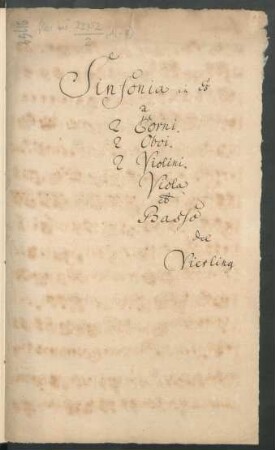 Sinfonia
a
2 Corni.
2 Oboi.
2 Violini.
Viola
et
Basso
del
Vierling